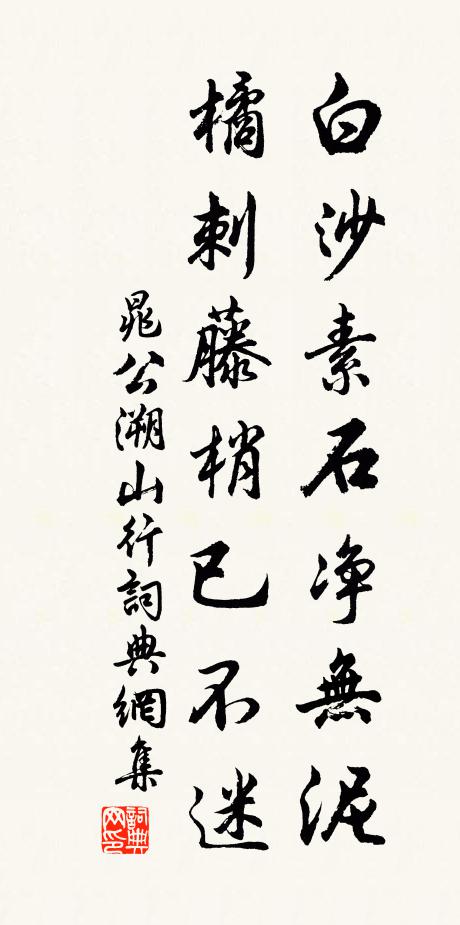 白沙素石净無泥
橘刺藤梢已不迷
晁公溯山行詞典網集
詞典網印